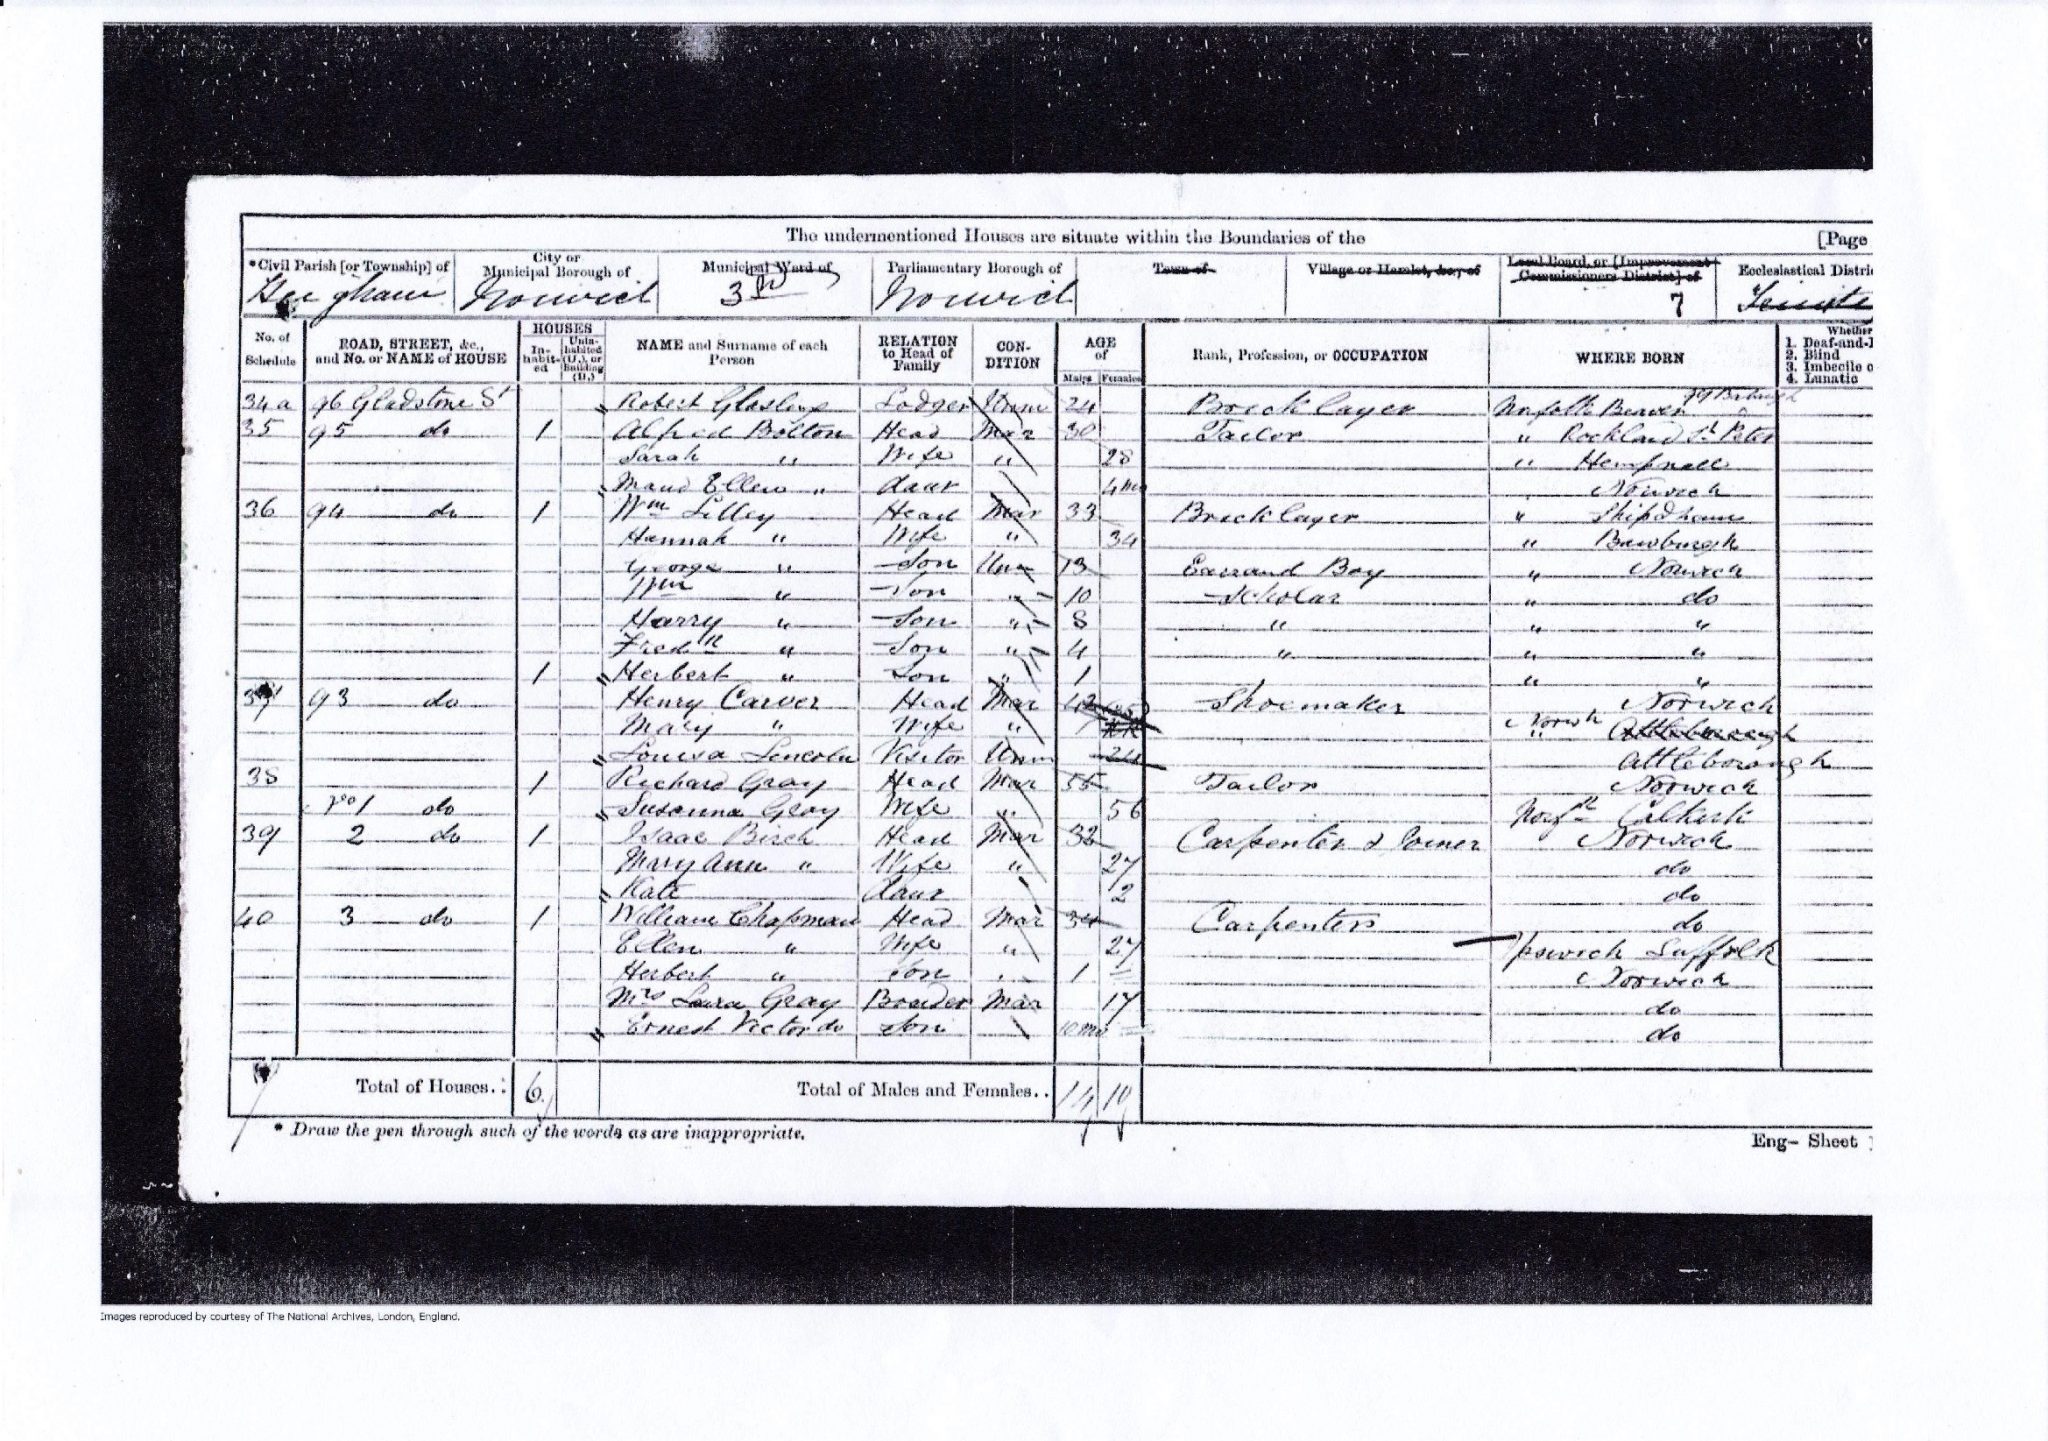 The undermentioned Houses are situate within the Boundaries of the [Page
*Civil Parish [or Township] of City or Municipal Borough of Municipal Ward of Parliamentary Borough of Town of Village or Hamlet, &c., of Local Board, or [Improvement Commissioners District] of Ecclesiastical Distric
Norwich 3rd Norwich 7
No. of Schedule ROAD, STREET, &c., and No. or NAME of HOUSE HOUSES In-habit-ed Unin-habited (U.), or Building (B.) NAME and Surname of each Person RELATION to Head of Family CON-DITION AGE of Males Females Rank, Profession, or OCCUPATION WHERE BORN Whether 1. Deaf-and-D 2. Blind 3. Imbecile o 4. Lunatic
34a 96 Gladstone St Robert Lodger Unm 24 Brick layer Norfolk
35 95 do 1 Alfred Bolton Head Mar 30 Tailor " Rockland St Peter
Sarah " Wife " 28 " Hempnall
Maud Ellen " daur 4mo Norwich
36 94 do 1 Wm Lilley Head Mar 33 Bricklayer " Shipdham
Hannah " Wife " 34 " Bawburgh
George " Son Unm 13 Errand Boy " Norwich
Wm " Son " 10 Scholar " do
Harry " Son " 8 " " "
Fredk " Son " 4 " " "
1 Herbert " Son " 1 " "
37 93 do Henry Carver Head Mar 42 Shoemaker Norwich
Mary " Wife " Attleborough
Louisa Lincoln Visitor Unm 24 Attleborough
38 1 Richard Gray Head Mar 55 Tailor Norwich
No 1 do Susanna Gray Wife " 56 Norfk
39 2 do 1 Isaac Birch Head Mar 32 Carpenter & Joiner Norwich
Mary Ann " Wife " 27 do
Kate daur 2 do
40 3 do 1 William Chapman Head Mar 34 Carpenters do
Ellen " Wife " 27 Ipswich Suffolk
Herbert " Son " 1 Norwich
Mrs Laura Gray Boarder Mar 17 do
Ernest Victor do Son 10mo do
Total of Houses.. 6 Total of Males and Females.. 14 10
* Draw the pen through such of the words as are inappropriate.
Eng— Sheet
Images reproduced by courtesy of The National Archives, London, England.